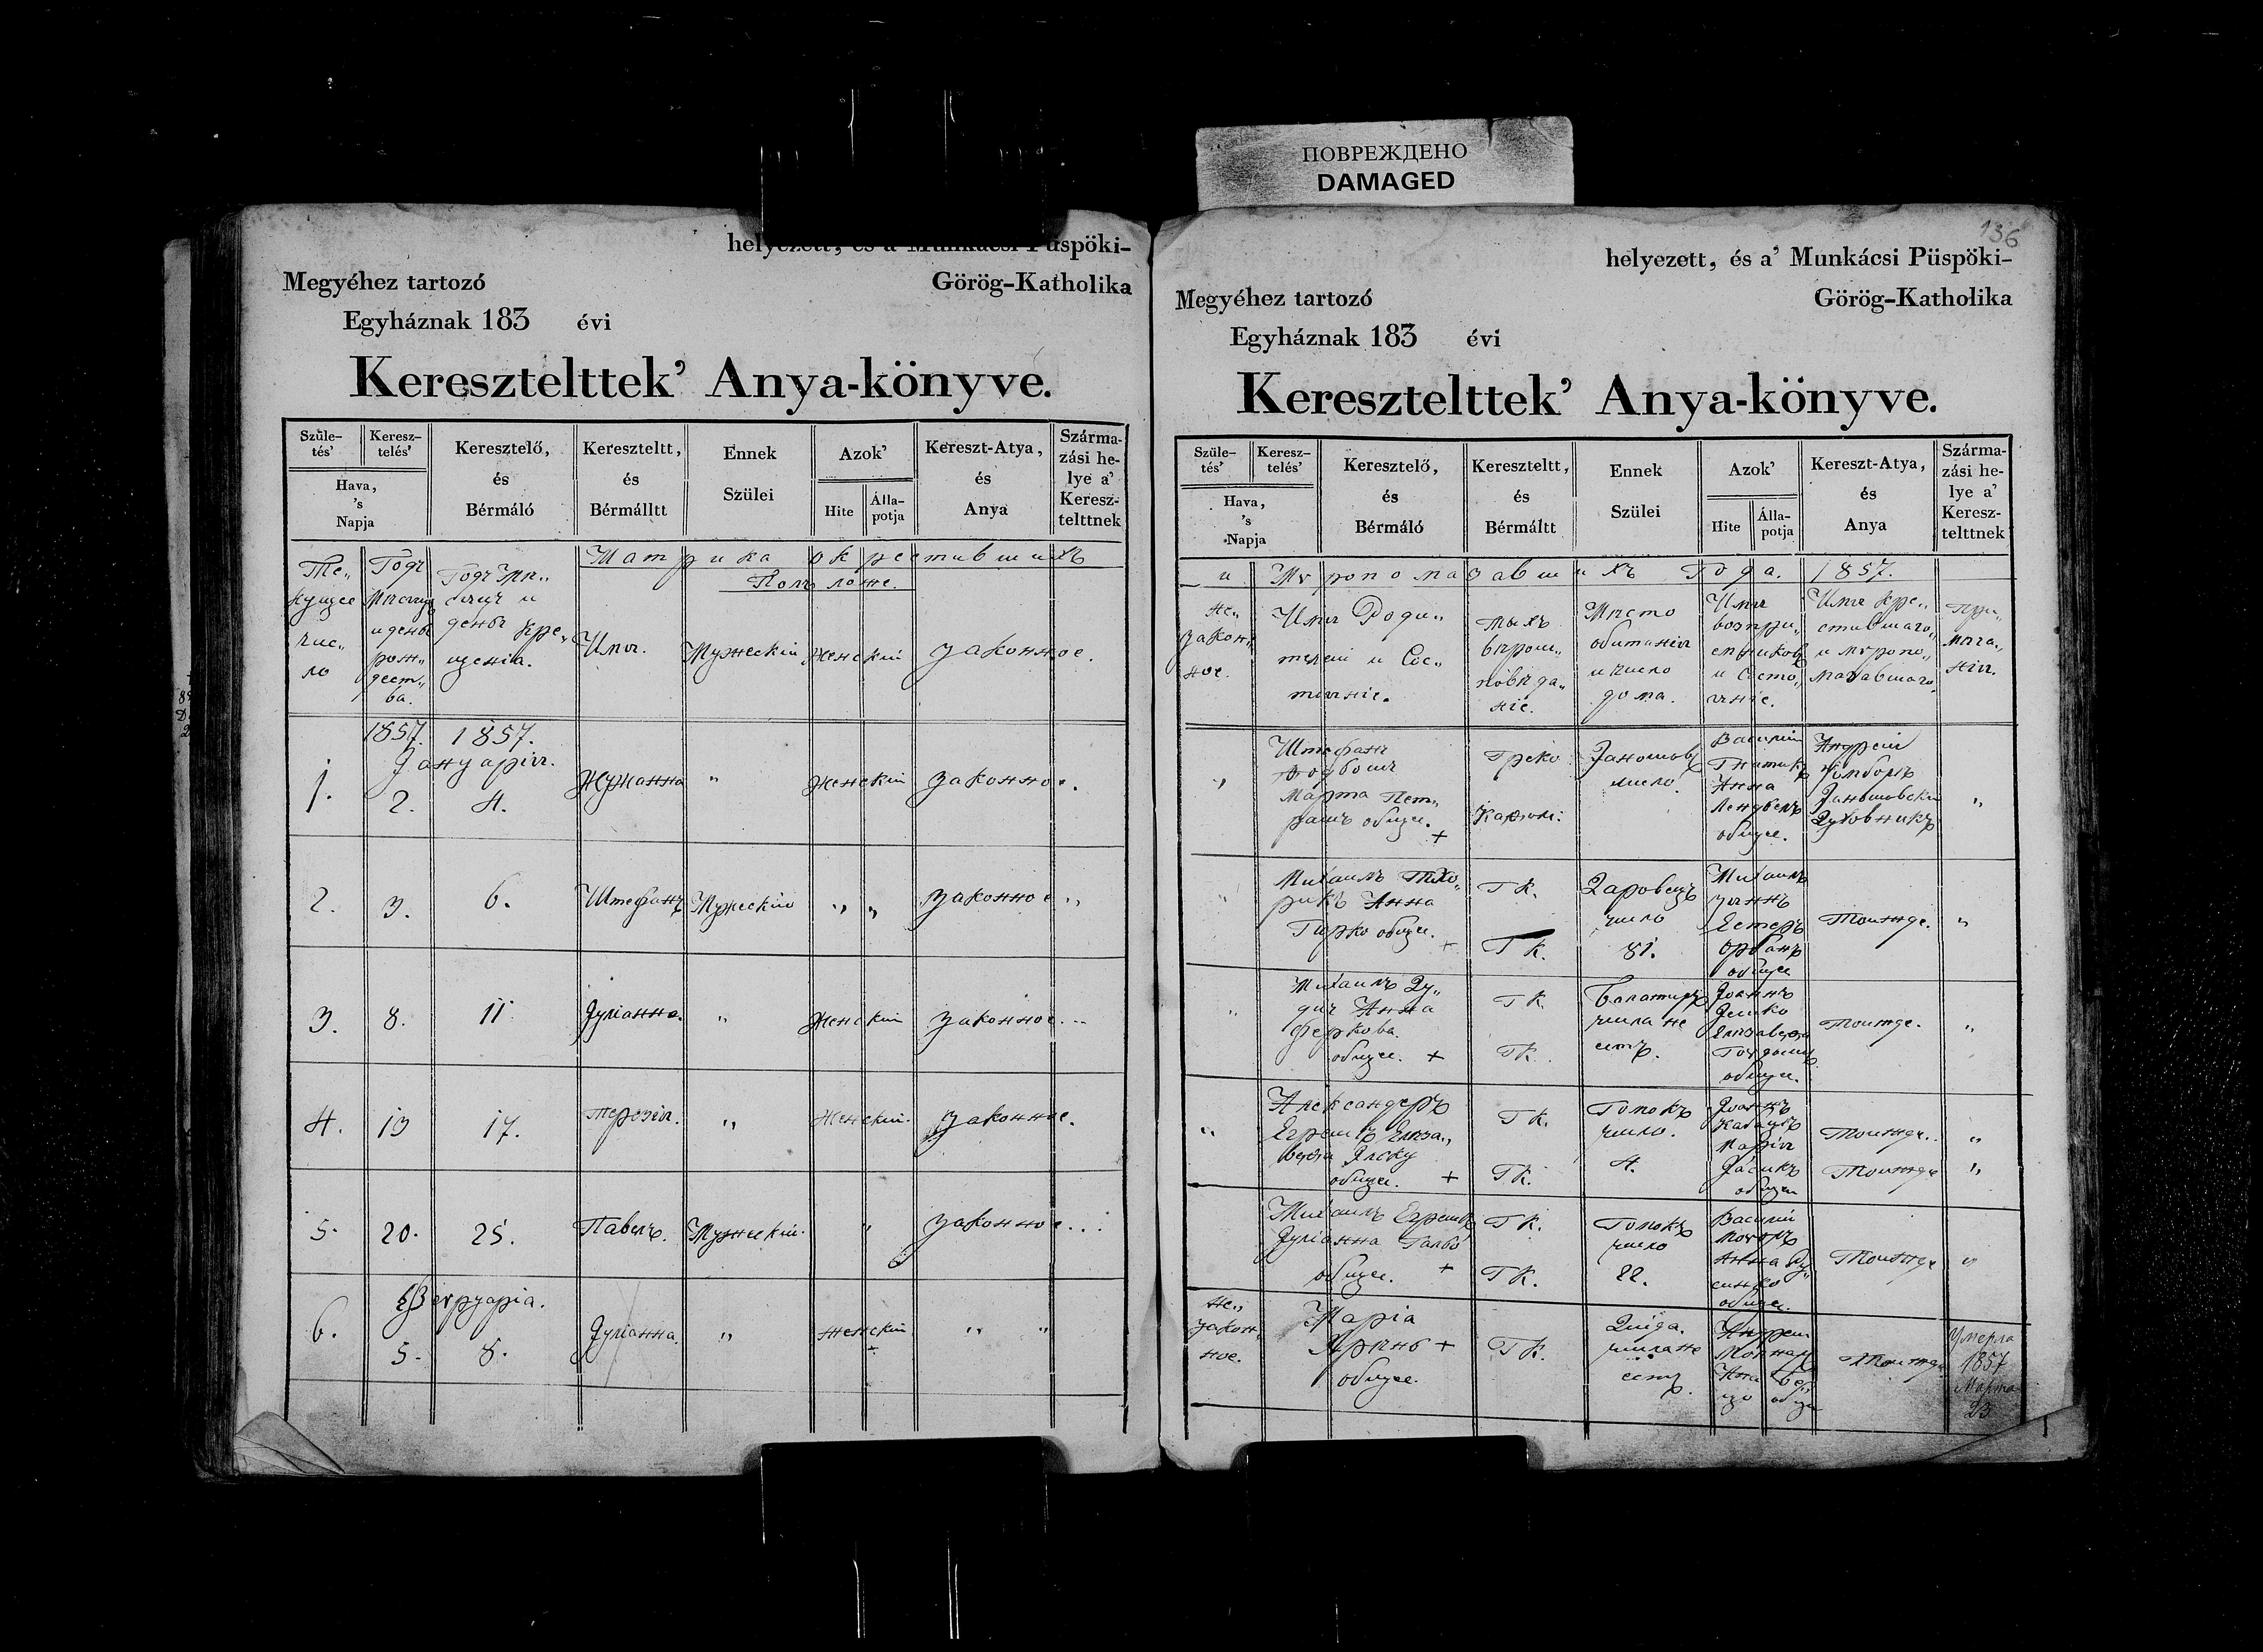 ПОВРЕЖДЕНО
DAMAGED
helyezett, és a' Munkácsi Püspöki-
Megyéhez tartozó
Görög-Katholika
Egyháznak 183 évi
Keresztelttek' Anya-könyve.
Szüle-
tés'
Keresz-
telés'
Hava,
's
Napja
Keresztelő,
és
Bérmáló
Kereszteltt,
és
Bérmálltt
Ennek
Szülei
Azok'
Hite
Álla-
potja
Kereszt-Atya,
és
Anya
Szárma-
zási he-
lye a'
Keresz-
telttnek
Матрика окрестившихъ
Полъ ложе.
Те„
кущее
чис„
ло
Годъ
Мѣсяцъ
и день
рож„
дест„
ва.
Годъ Мѣ„
сяцъ и
день кре„
щенія.
Имя.
Мужескій
Женскій
Законное.
1857. 1857.
Јануарія.
1. 2. 4. Жужанна „ Женскій законное.
2. 3. 6. Штефанъ Мужескій „ „ законное „
3. 8. 11 Јуліанна. „ Женскій законное.
4. 13 17. Терезія. „ Женскій. законное.
5. 20. 25. Павелъ. Мужескій. „ законное...
Февруаріа.
6. 5. 8. Јуліанна. „ женскій „ „
+
136
helyezett, és a' Munkácsi Püspöki-
Megyéhez tartozó
Görög-Katholika
Egyháznak 183 évi
Keresztelttek' Anya-könyve.
Szüle-
tés'
Keresz-
telés'
Hava,
's
Napja
Keresztelő,
és
Bérmáló
Kereszteltt,
és
Bérmáltt
Ennek
Szülei
Azok'
Hite
Álla-
potja
Kereszt-Atya,
és
Anya
Szárma-
zási he-
lye a'
Keresz-
telttnek
и Мѵропомазавшихъ Года. 1857.
не„
закон„
ное.
Имя Роди„
телей и Сос„
тояніе.
Тыхъ
вѣрои„
повѣда„
ніе.
Мѣсто
обитанія
и число
дома.
Имя
воспри„
емниковъ
и Состо„
яніе.
Имя кре„
стившаго
и мѵропо„
мазавшаго.
При„
мѣча„
нія.
„
Штефанъ
Марта Пет„
рашъ общее.
+
Греко
Каѳол:
Јаношовце
число.
Василій
Анна
Лендвелъ
общее.
Андрей
Јаношовскій
Духовникъ
„
„
Михаилъ
Анна
общее.
+
ГК.
ГК.
Даровецъ
число
81.
Михаилъ
Естеръ
Орбанъ
общее
Тоижде.
„
„
Михаилъ Ду„
Анна
Феркова.
общее. +
ГК
ГК.
числа не
естъ.
Јоаннъ
Елизавета
общее.
Тоижде.
„
„
Александеръ
Егрешъ Елиза„
вета
общее. +
ГК.
ГК.
число.
4.
Јоаннъ
Марія
общее
Тоижде.
Тоижде
„
„
Михаилъ Егрешъ
Јуліанна
общее. +
ГК.
ГК.
число
22.
Василій
Анна
общее.
Тоижде
„
не„
закон„
ное.
Маріа
+
общее.
ГК.
числа не
естъ.
Андрей
Тоижде
Умерла
1857
Марта
23